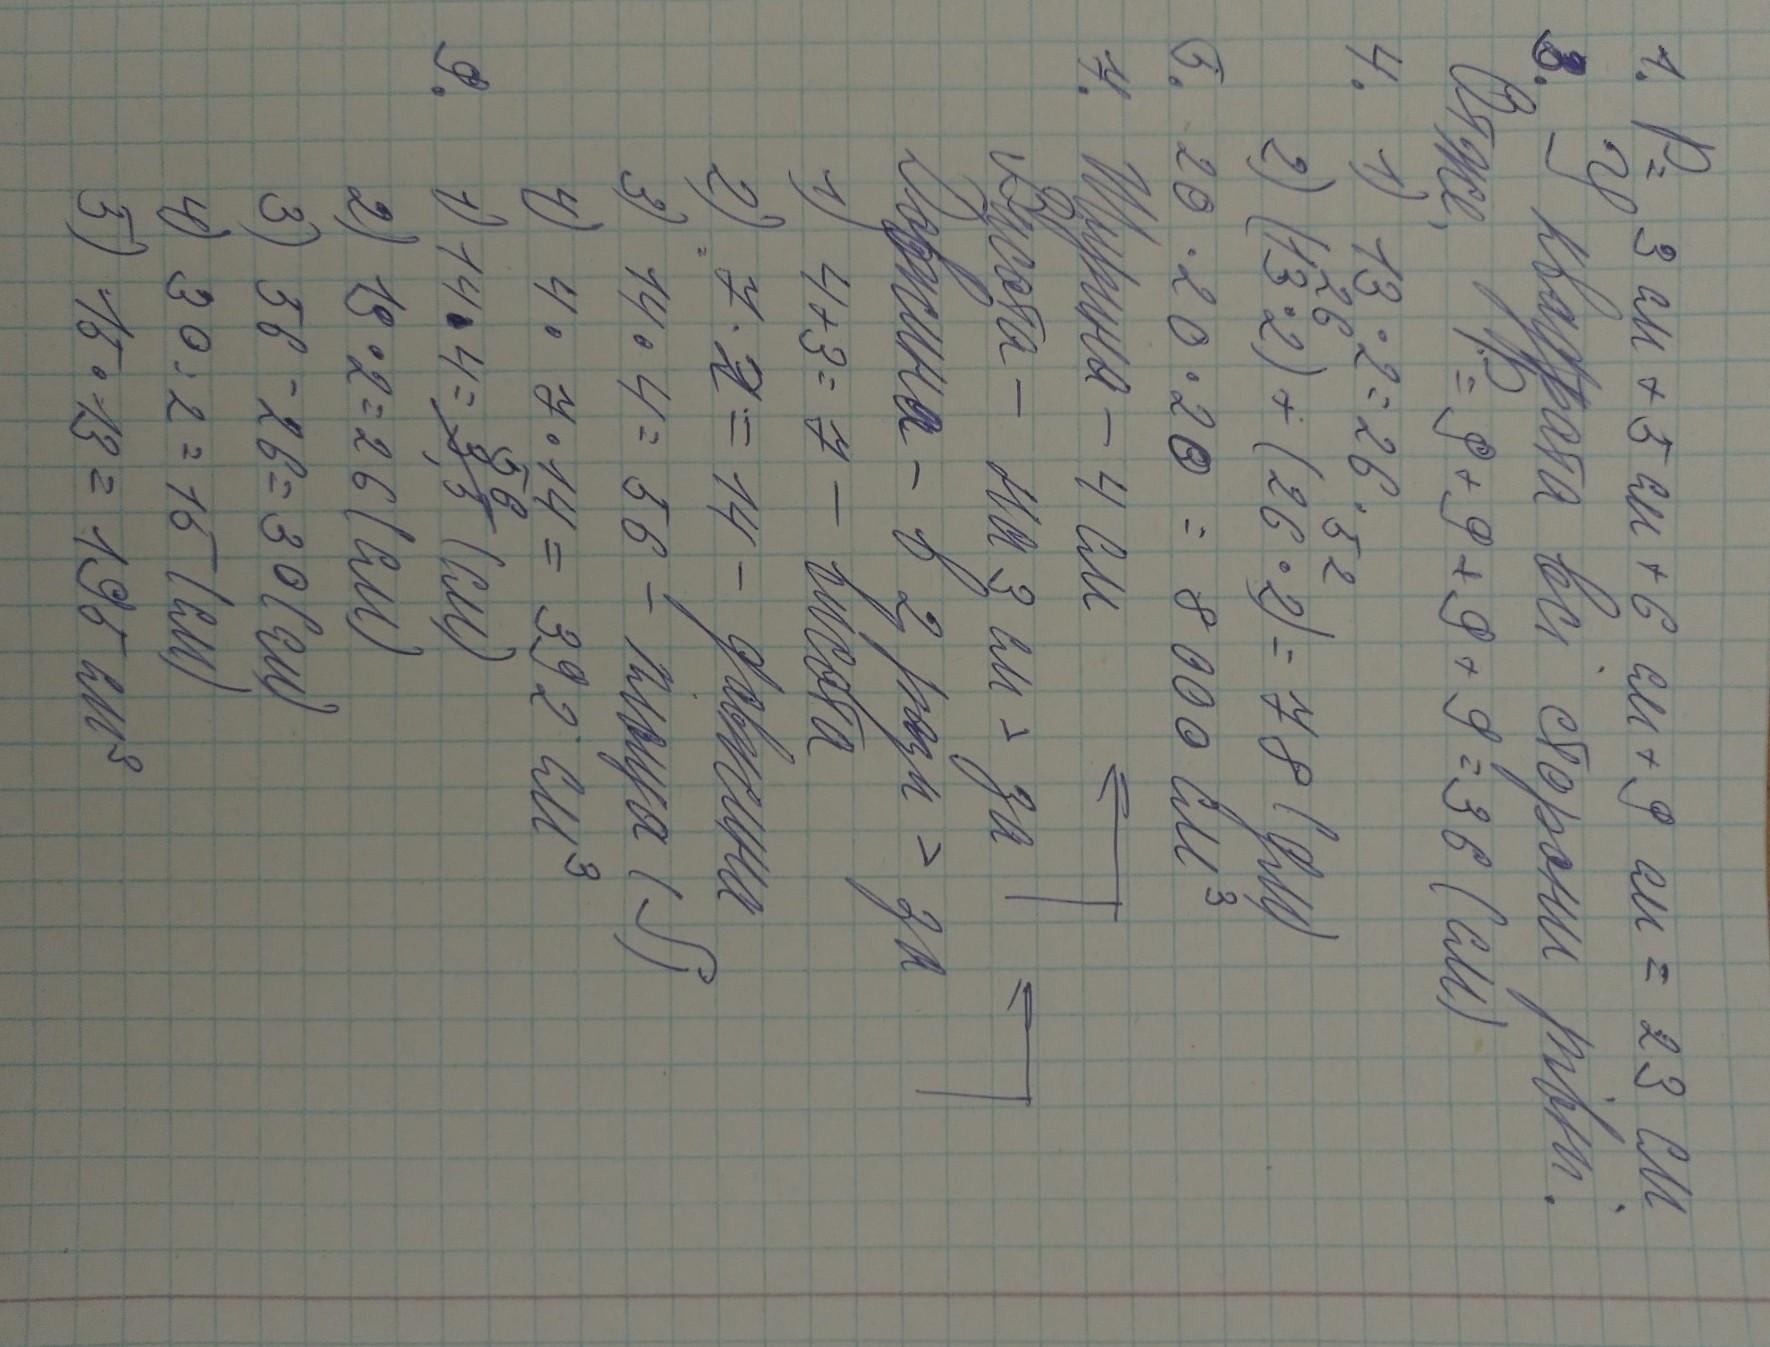 1. P = 3 см + 5 см + 6 см + 9 см = 23 см
3. у квадрата всі сторони рівні.
Отже, P = 9 + 9 + 9 + 9 = 36 (см)
4. 1) 13 · 2 = 26
26 52
2) (13 · 2) + (26 · 2) = 78 (дм)
5. 20 · 20 · 20 = 8000 см³
7. Ширина – 4 см
Висота – на 3 см > за
Довжина – в 2 рази > за
1) 4 + 3 = 7 – висота
2) 7 · 2 = 14 – довжина
3) 14 · 4 = 56 – площа (S)
4) 4 · 7 · 14 = 392 см³
9. 1) 14 · 4 = 56 (см)
2) 13 · 2 = 26 (см)
3) 56 - 26 = 30 (см)
4) 30 : 2 = 15 (см)
5) 15 · 13 = 195 см³